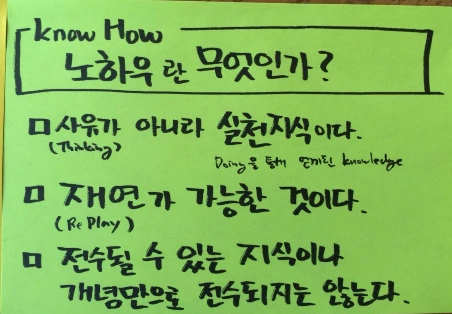 Know How
노하우란 무엇인가?
□ 사유가 아니라 실천지식이다.
(Thinking)
Doing을 통해 knowledge
□ 재연가 가능한 것이다.
(Re Play)
□ 전수될 수 있는 지식이나
개념만으로 전수되지는 않는다.